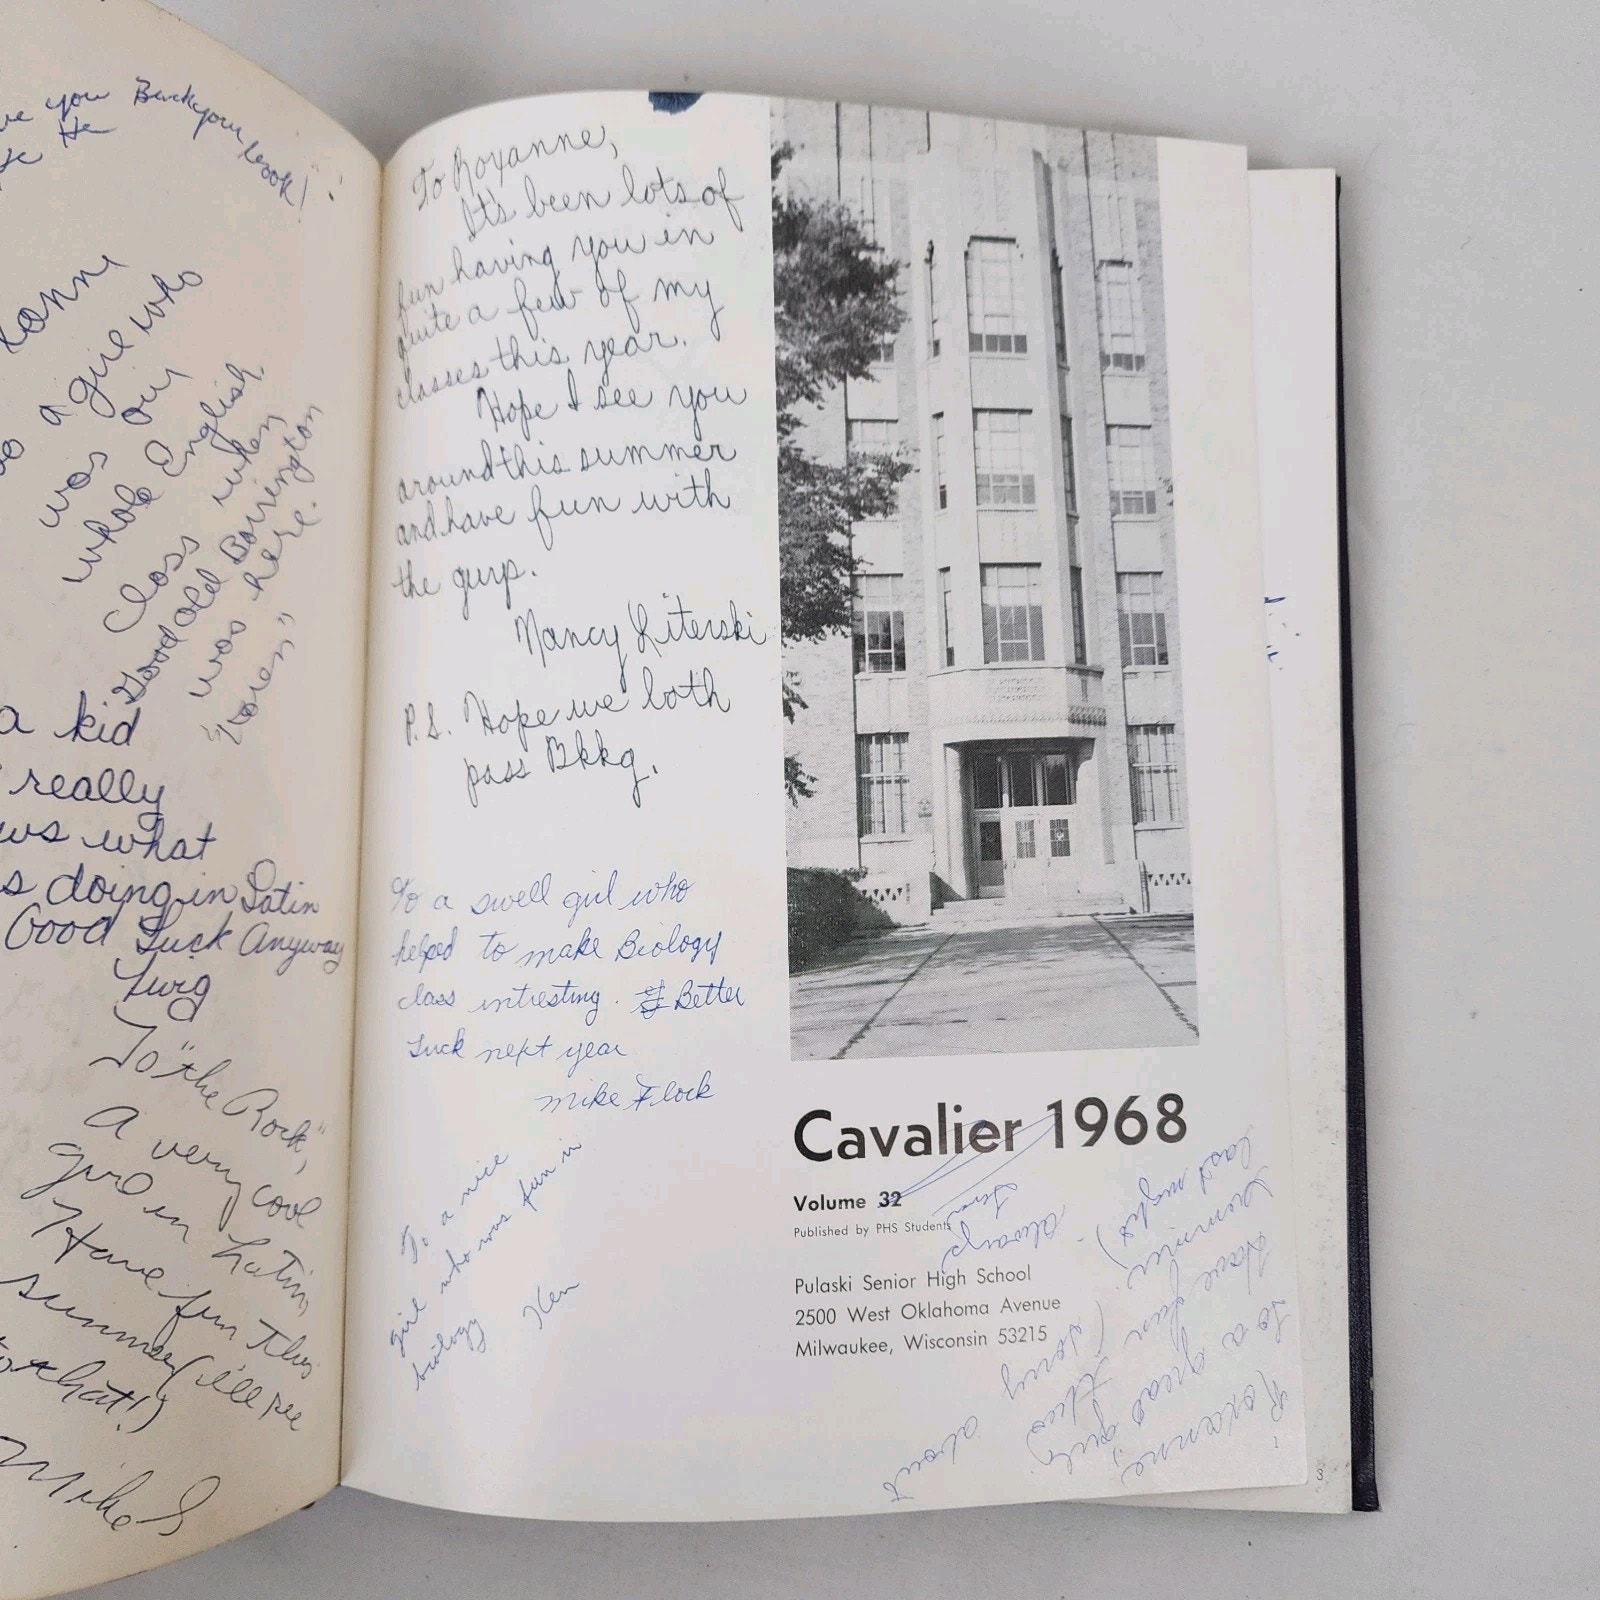 ve you Back your book!
He
xanne
a girl who
was our
whole English
class when
Good old Bovington
was here.
"Koren"
a kid
really
ws what
s doing in Latin
Good Luck Anyway
Turg
To "the Rock",
A very cool
girl in Latin
Have fun This
summer (i'll see
to that!)
Mike S
To Roxanne,
It's been lots of
fun having you in
quite a few of my
classes this year.
Hope I see you
around this summer
and have fun with
the gurp.
Nancy Literski
P.S. Hope we both
pass Bkkg.
To a swell girl who
helped to make Biology
class intresting. Better
Luck next year
Mike Flock
To a nice
girl who was fun in
biology
Ken
Cavalier 1968
Volume 32
Published by PHS Students
Pulaski Senior High School
2500 West Oklahoma Avenue
Milwaukee, Wisconsin 53215
Roxanne,
To a great girl,
Have fun this
summer. (Sorry about
last night)
Always
3